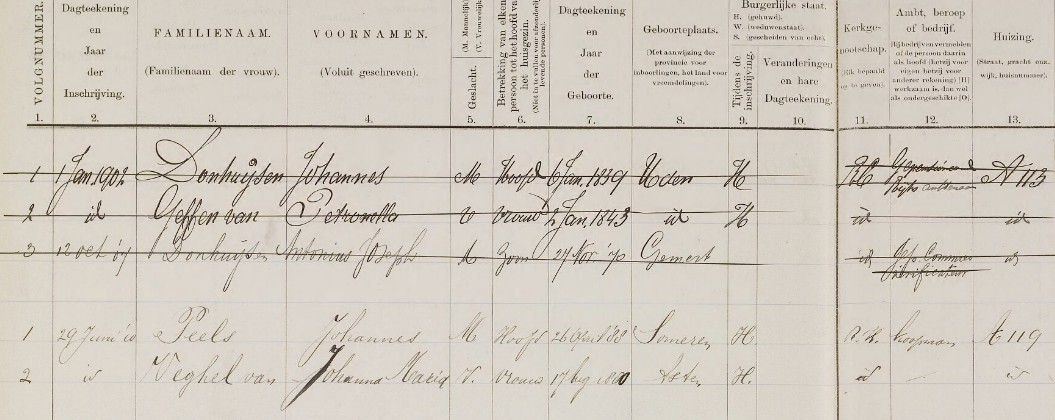 VOLGNUMMER. Dagteekening en Jaar der Inschrijving. FAMILIENAAM. (Familienaam der vrouw). VOORNAMEN. (Voluit geschreven). Geslacht. (M. Mannelijk) (V. Vrouwelijk) Betrekking van elken persoon tot het hoofd van het huisgezin. (Niet in te vullen voor afzonderlijk levende personen). Dagteekening en Jaar der Geboorte. Geboorteplaats. (Met aanwijzing der provincie voor inboorlingen, het land voor vreemdelingen). Burgerlijke staat. H. (gehuwd). W. (weduwenstaat). S. (gescheiden van echt). Tijdens de inschrijving. Veranderingen en hare Dagteekening. Kerkge- nootschap. Ambt, beroep of bedrijf. Huizing.
1. 2. 3. 4. 5. 6. 7. 8. 9. 10. 11. 12. 13.
1 1 Jan. 1902 Donhuijsen Johannes M Hoofd 6 Jan. 1839 Uden H RK Gepensioneerd Rijks A 113
2 id Geffen van Petronella V vrouw 2 Jan. 1843 id H id id
3 12 oct Donhuijsen Antonius Joseph M zoon 27 Nov Gemert id Commies id
Verificateur
1 29 Juni Peels Johannes M Hoofd 26 April Someren H R. K. koopman A 119
2 id Veghel van Johanna Maria V. vrouw 17 Aug Asten H. id id